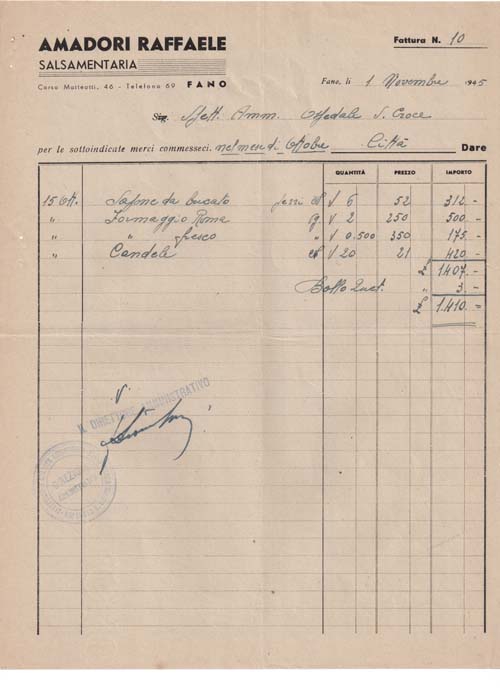 AMADORI RAFFAELE
SALSAMENTARIA
Corso Matteotti, 46 - Telefono 69 FANO
Fattura N. 10
Fano, li 1 Novembre 1945
Sig. Spett. Amm. Ospedale S. Croce
per le sottoindicate merci commesseci. nel mese di Ottobre Città Dare
QUANTITÀ PREZZO IMPORTO
15 Ott. Sapone da bucato pezzi N 6 52 312.-
" Formaggio Roma Kg 2 250 500.-
" " fresco " 0.500 350 175.-
" Candele N 20 21 420.-
1.407.-
Bollo Quet. " 3.-
1.410.=
V.
IL DIRETTORE AMMINISTRATIVO